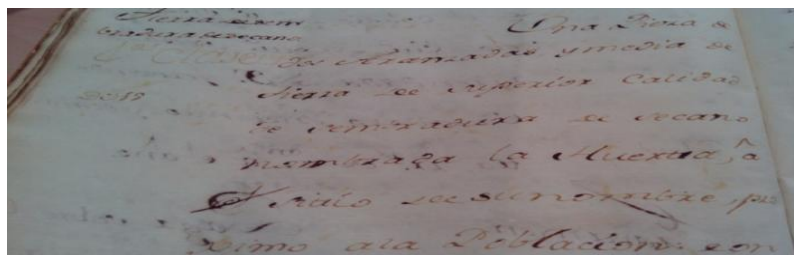 Tierra de sem
bradura de secano
Una Pieza de
dos Aranzadas y media de
Tierra de superior Calidad
de sembradura de secano
nombrada la Huerta, â
Sitio de su nombre, pro
simo ala Poblacion: con